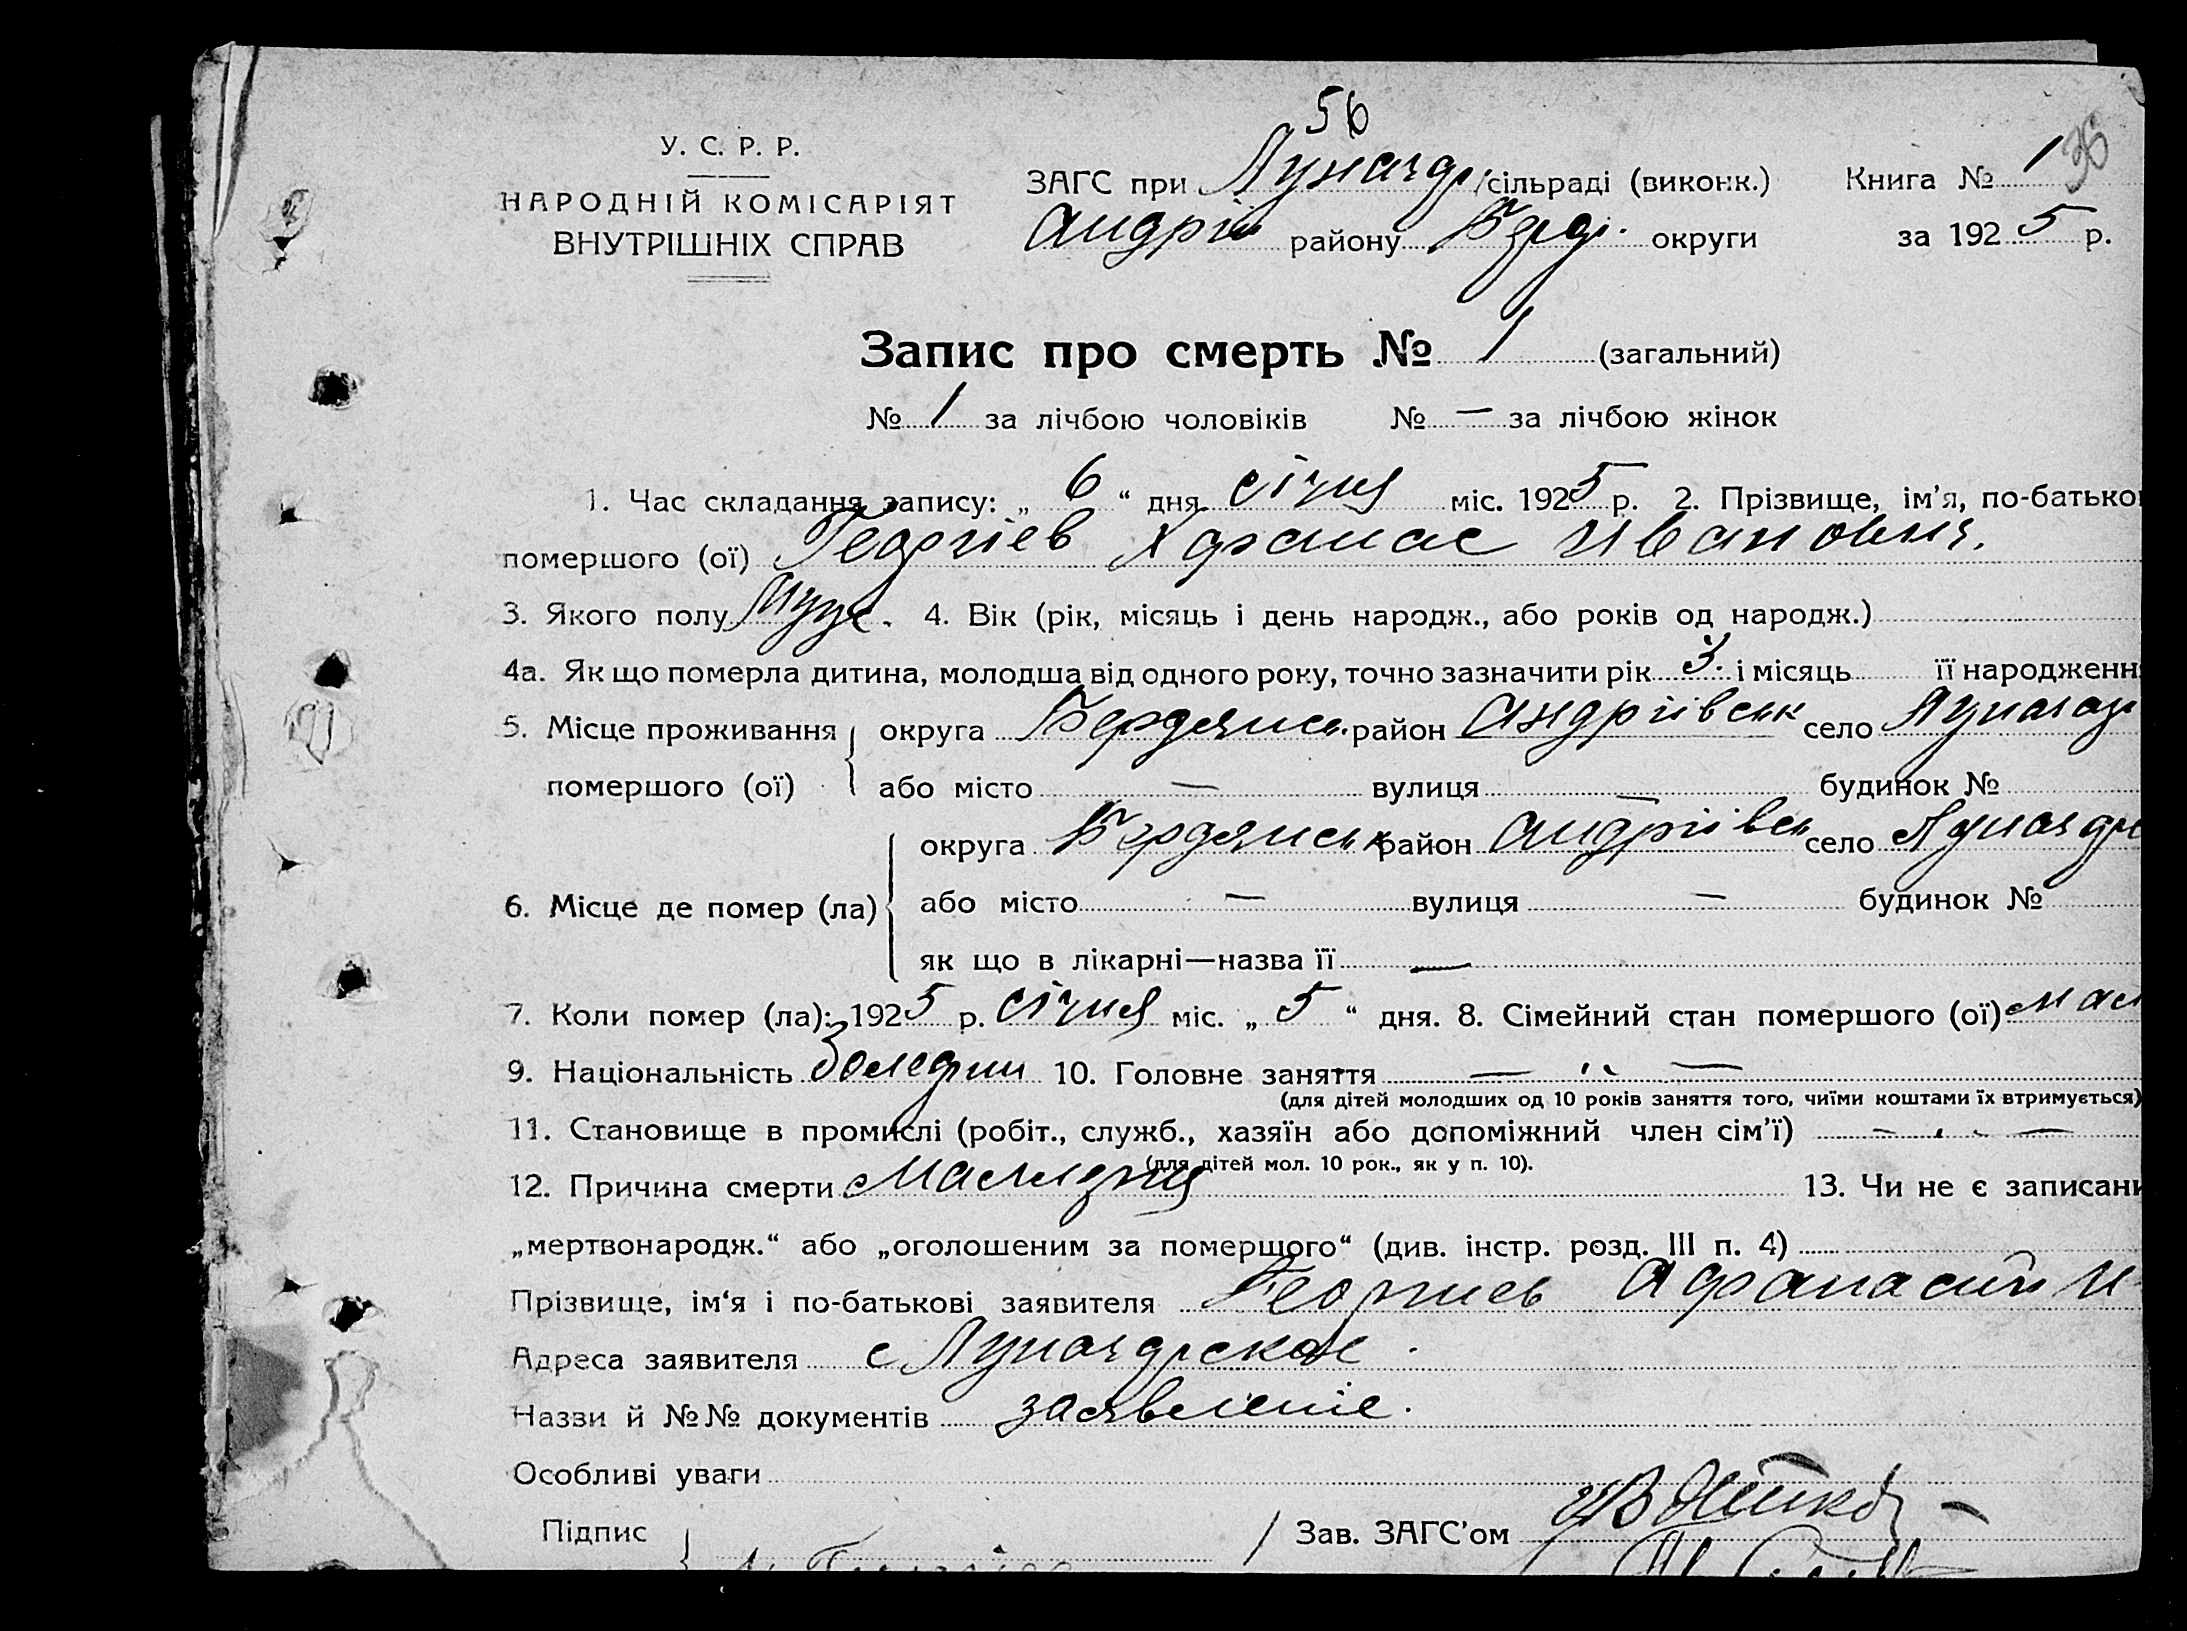 56
36
У. С. Р. Р.
НАРОДНІЙ КОМІСАРІЯТ
ВНУТРІШНІХ СПРАВ
ЗАГС при Луначар сільраді (виконк.) Книга № 1
Андрів району Берд. округи за 1925 р.
Запис про смерть № 1 (загальний)
№ 1 за лічбою чоловіків № — за лічбою жінок
1. Час складання запису: „ 6 “ дня січня міс. 1925 р. 2. Прізвище, ім'я, по-батько
помершого (ої) Георгіев Афанас Иванович.
3. Якого полу Муж. 4. Вік (рік, місяць і день народж., або років од народж.)
4а. Як що померла дитина, молодша від одного року, точно зазначити рік 3. і місяць її народженн
5. Місце проживання округа Бердянськ. район Андріівськ село Луначар
помершого (ої) або місто — вулиця — будинок №
6. Місце де помер (ла) округа Бердянськ район Андріівськ село Луначар
або місто — вулиця — будинок №
як що в лікарні—назва її —
7. Коли помер (ла): 1925 р. січня міс. „ 5 “ дня. 8. Сімейний стан помершого (ої)
9. Національність 10. Головне заняття — " —
(для дітей молодших од 10 років заняття того, чиїми коштами їх втримується)
11. Становище в промислі (робіт., служб., хазяїн або допоміжний член сім'ї) — " —
(для дітей мол. 10 рок., як у п. 10).
12. Причина смерти 13. Чи не є записани
„мертвонародж.“ або „оголошеним за померщого“ (див. інстр. розд. III п. 4)
Прізвище, ім‘я і по-батькові заявителя Георгиев Афанасий И
Адреса заявителя с Луначарское.
Назви й №№ документів заявление.
Особливі уваги
Підпис Зав. ЗАГС'ом